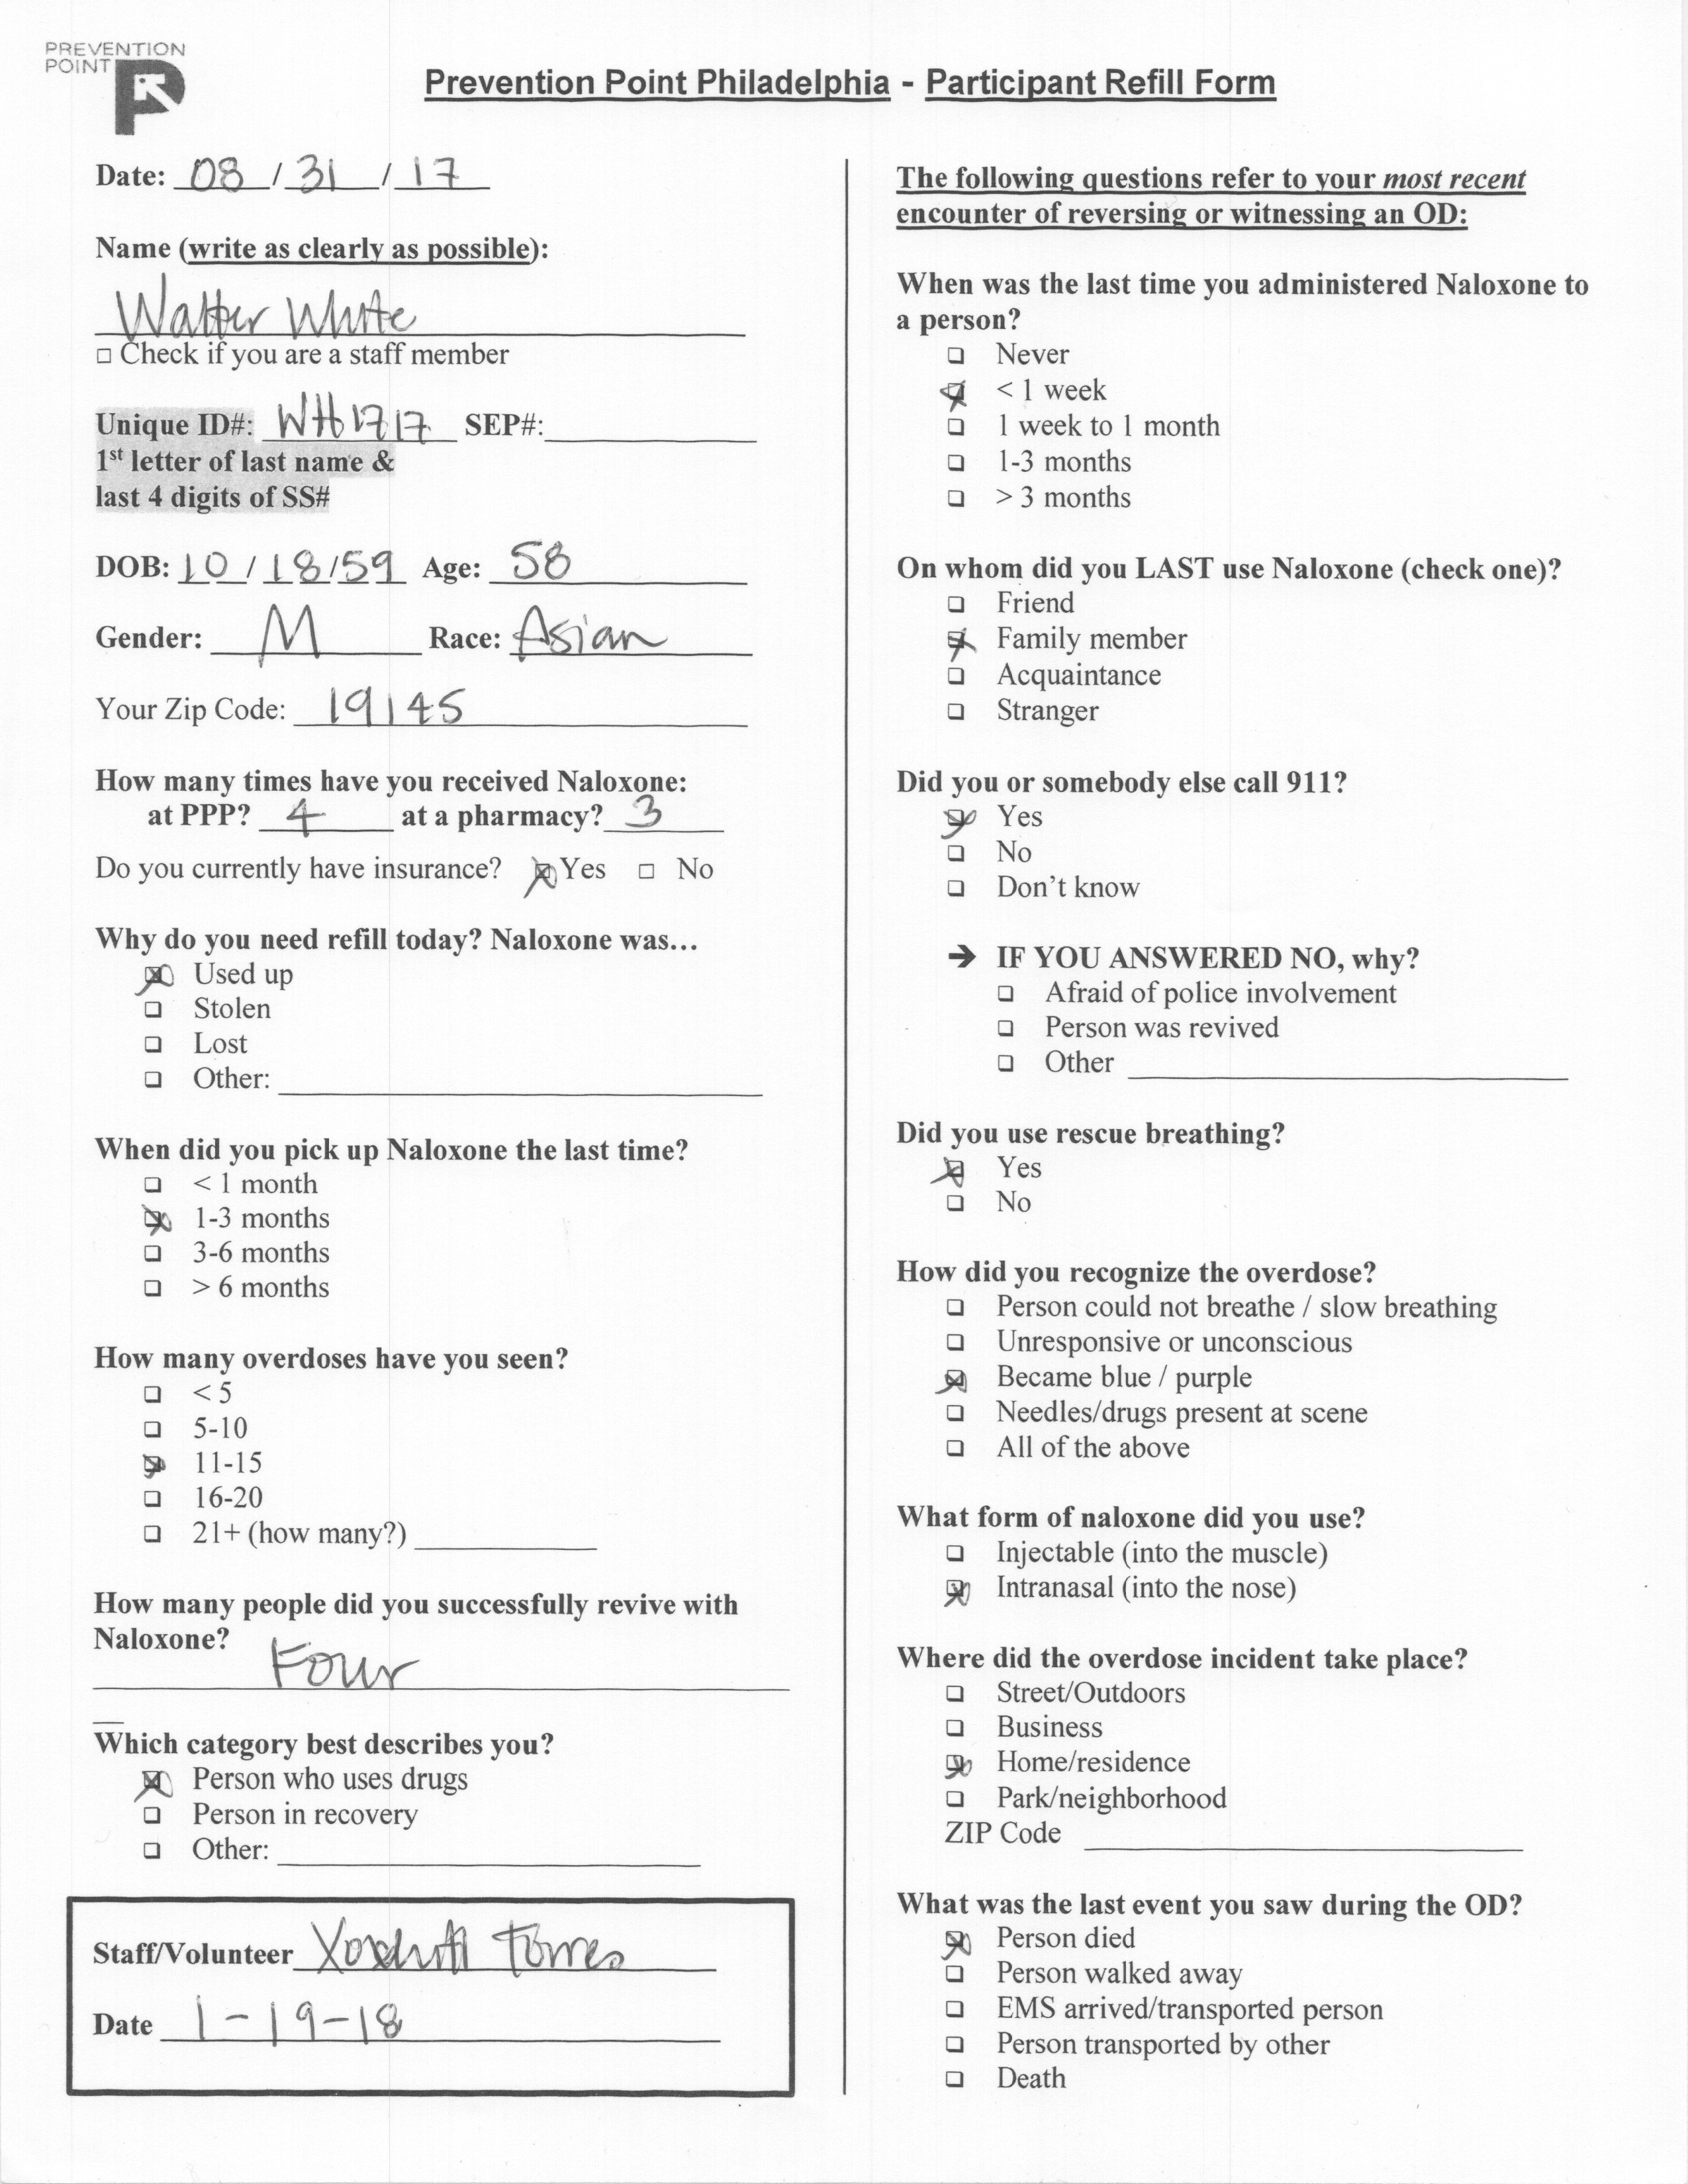 PREVENTION
POINT
Prevention Point Philadelphia - Participant Refill Form
Date: 08 / 31 / 17
Name (write as clearly as possible):
Walter White
☐ Check if you are a staff member
Unique ID#: WH1717 SEP#:
1st letter of last name &
last 4 digits of SS#
DOB: 10 / 18/59 Age: 58
Gender: M Race: Asian
Your Zip Code: 19145
How many times have you received Naloxone:
at PPP? 4 at a pharmacy? 3
Do you currently have insurance? ☒ Yes ☐ No
Why do you need refill today? Naloxone was…
☒ Used up
☐ Stolen
☐ Lost
☐ Other:
When did you pick up Naloxone the last time?
☐ < 1 month
☒ 1-3 months
☐ 3-6 months
☐ > 6 months
How many overdoses have you seen?
☐ < 5
☐ 5-10
☒ 11-15
☐ 16-20
☐ 21+ (how many?)
How many people did you successfully revive with
Naloxone?
Four
Which category best describes you?
☒ Person who uses drugs
☐ Person in recovery
☐ Other:
Staff/Volunteer Torres
Date 1-19-18
The following questions refer to your most recent
encounter of reversing or witnessing an OD:
When was the last time you administered Naloxone to
a person?
☐ Never
☒ < 1 week
☐ 1 week to 1 month
☐ 1-3 months
☐ > 3 months
On whom did you LAST use Naloxone (check one)?
☐ Friend
☒ Family member
☐ Acquaintance
☐ Stranger
Did you or somebody else call 911?
☒ Yes
☐ No
☐ Don't know
➔ IF YOU ANSWERED NO, why?
☐ Afraid of police involvement
☐ Person was revived
☐ Other
Did you use rescue breathing?
☒ Yes
☐ No
How did you recognize the overdose?
☐ Person could not breathe / slow breathing
☐ Unresponsive or unconscious
☒ Became blue / purple
☐ Needles/drugs present at scene
☐ All of the above
What form of naloxone did you use?
☐ Injectable (into the muscle)
☒ Intranasal (into the nose)
Where did the overdose incident take place?
☐ Street/Outdoors
☐ Business
☒ Home/residence
☐ Park/neighborhood
ZIP Code
What was the last event you saw during the OD?
☒ Person died
☐ Person walked away
☐ EMS arrived/transported person
☐ Person transported by other
☐ Death